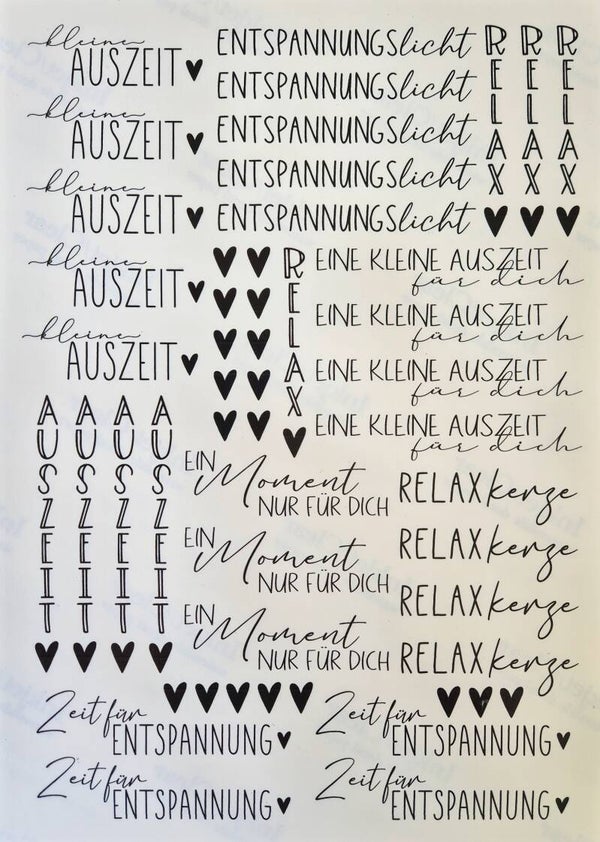 kleine
AUSZEIT
kleine
AUSZEIT
kleine
AUSZEIT
kleine
AUSZEIT
kleine
AUSZEIT
ENTSPANNUNGSlicht
ENTSPANNUNGSlicht
ENTSPANNUNGSlicht
ENTSPANNUNGSlicht
ENTSPANNUNGSlicht
RELAX
RELAX
RELAX
RELAX
EINE KLEINE AUSZEIT
für dich
EINE KLEINE AUSZEIT
für dich
EINE KLEINE AUSZEIT
für dich
EINE KLEINE AUSZEIT
für dich
AUSZEIT
AUSZEIT
AUSZEIT
AUSZEIT
EIN
Moment
NUR FÜR DICH
EIN
Moment
NUR FÜR DICH
EIN
Moment
NUR FÜR DICH
RELAXkerze
RELAXkerze
RELAXkerze
RELAXkerze
Zeit für
ENTSPANNUNG
Zeit für
ENTSPANNUNG
Zeit für
ENTSPANNUNG
Zeit für
ENTSPANNUNG